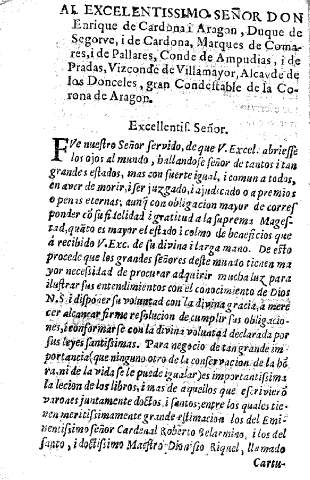 AL EXCELENTISSIMO SEÑOR DON
Enrique de Cardona i Aragon, Duque de
Segorve, i de Cardona, Marques de Coma-
res, i de Pallares, Conde de Ampudias, i de
Pradas, Vizconde de Villamayor, Alcayde de
los Donceles, gran Condestable de la Co-
rona de Aragon.
Excellentiss. Señor.
FVe nuestro Señor servido, de que V. Excel. abriesse
los ojos al mundo, hallandose señor de tantos i tan
grandes estados, mas con suerte igual, i comun a todos,
en aver de morir, i ser juzgado, i ajudicado o a premios
o penas eternas; aunq̃ con obligacion mayor de corres
ponder cõ su fidelidad i gratitud a la suprema Mages-
tad, quãto es mayor el estado i colmo de beneficios que
à recibido V. Exc. de su divina i larga mano. De esto
procede que los grandes señores deste mundo tienen ma
yor necesidad de procurar adquirir mucha luz para
ilustrar sus entendimientos con el conocimiento de Dios
N.S. i disponer su voluntad con la divina gracia, à mere
cer alcançar firme resolucion de cumplir sus obligacio-
nes, i conformarse con la divina voluntad declarada por
sus leyes santissimas. Para negocio de tan grande im-
portancia (que ninguno otro de la conservacion de la hõ
ra, ni de la vida se le puede igualar) es importantissima
la lecion de los libros, i mas de aquellos que escrivierõ
varones juntamente doctos, i santos; entre los quales tie-
nen meritissimamente grande estimacion los del Emi-
nentissimo señor Cardenal Roberto Belarmino, i los del
santo, i doctissimo Maestro Dionisio Riquel, llamado
Cartu-